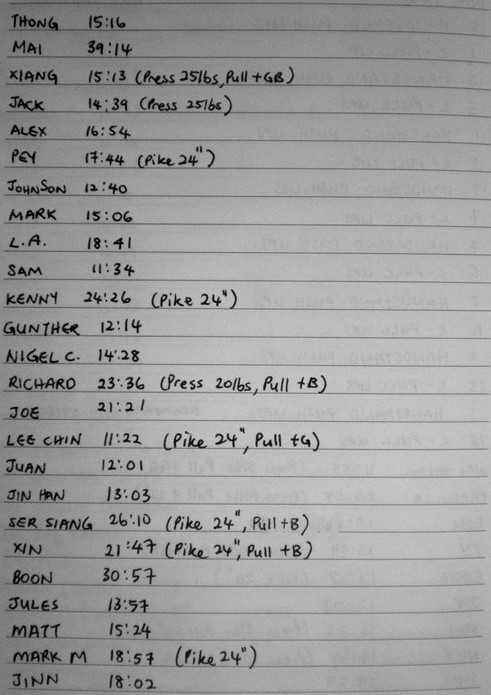 THONG 15:16
MAI 39:14
XIANG 15:13 (Press 25lbs, Pull +GB)
JACK 14:39 (Press 25lbs)
ALEX 16:54
PEY 17:44 (Pike 24")
JOHNSON 12:40
MARK 15:06
L.A. 18:41
SAM 11:34
KENNY 24:26 (Pike 24")
GUNTHER 12:14
NIGEL C. 14:28
RICHARD 23:36 (Press 20lbs, Pull +B)
JOE 21:21
LEE CHIN 11:22 (Pike 24", Pull +G)
JUAN 12:01
JIN HAN 13:03
SER SIANG 26:10 (Pike 24", Pull +B)
XIN 21:47 (Pike 24", Pull +B)
BOON 30:57
JULES 13:57
MATT 15:24
MARK M 18:57 (Pike 24")
JINN 18:02